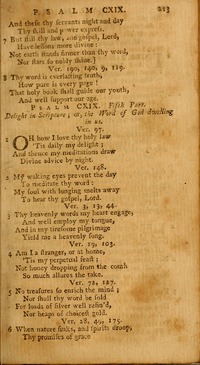 PSALM CXIX. 213
And these thy servants night and day
Thy skill and power express.
7 But still thy law, and gospel, Lord,
Have lessons more divine:
Not earth stands firmer than thy word,
Nor stars so nobly shine.]
Ver. 190, 140, 9, 119.
8 Thy word is everlasting truth,
How pure is every page!
That holy book shall guide our youth,
And well support our age.
PSALM CXIX. Fifth Part.
Delight in Scripture; or, the Word of God dwelling
in us.
Ver. 97.
1 OH how I love thy holy law
'Tis daily my delight;
And thence my meditations draw
Divine advice by night.
Ver. 148.
2 My waking eyes prevent the day
To meditate thy word:
My soul with longing melts away
To hear thy gospel, Lord.
Ver. 3, 13, 44.
3 Thy heavenly words my heart engage,
And well employ my tongue,
And in my tiresome pilgrimage
Yield me a heavenly song.
Ver. 19, 103.
4 Am I a stranger, or at home,
'Tis my perpetual feast;
Not honey dropping from the comb
So much allures the taste.
Ver. 72, 127.
5 No treasures so enrich the mind;
Nor shall thy word be sold
For loads of silver well refin'd,
Nor heaps of choicest gold.
Ver. 28, 49, 175.
6 When nature sinks, and spirits droop,
Thy promises of grace